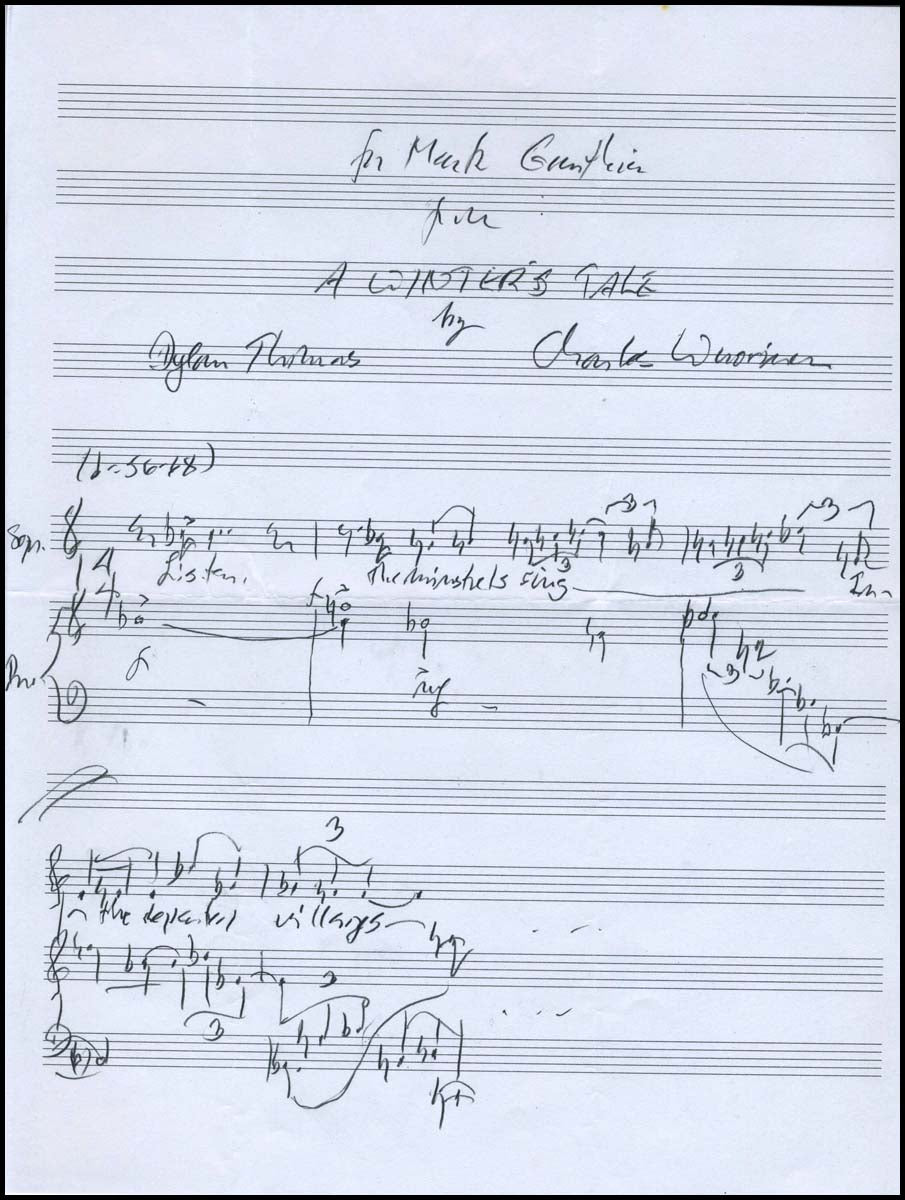 for Mark
from
A WINTER'S TALE
by
Dylan Thomas Charles Wuorinen
Sop.
4
4
Listen. The minstrels sing In-
3 3 3 3
f
mf
3
3
the departed villages
3
3